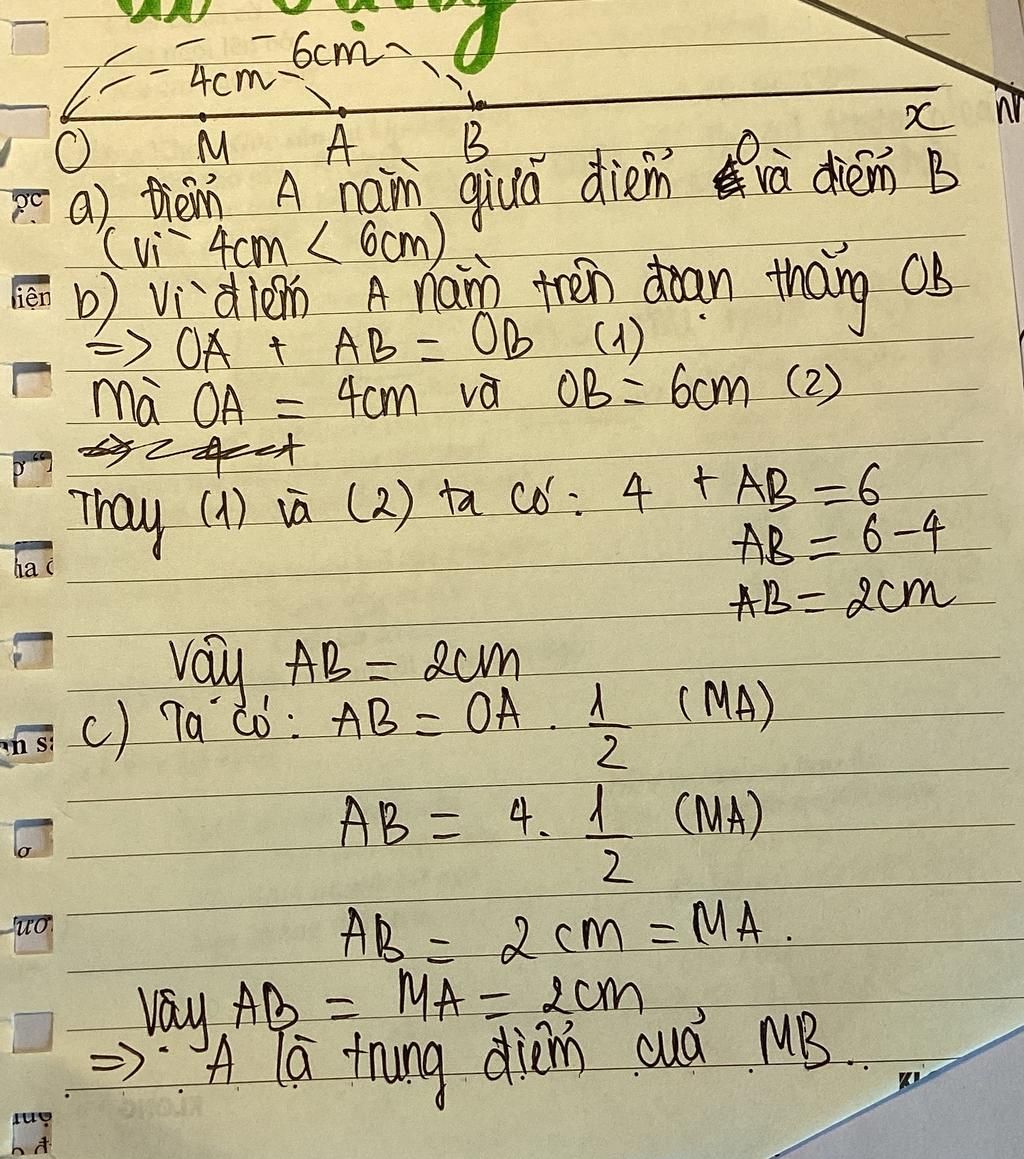 6cm
4cm
O M A B x
a) Điểm A nằm giữa điểm O và điểm B
(vì 4cm < 6cm)
b) Vì điểm A nằm trên đoạn thẳng OB
=> OA + AB = OB (1)
Mà OA = 4cm và OB = 6cm (2)
Thay (1) và (2) ta có: 4 + AB = 6
AB = 6 - 4
AB = 2cm
Vậy AB = 2cm
c) Ta có: AB = OA . 1/2 (MA)
AB = 4. 1/2 (MA)
AB = 2cm = MA.
Vậy AB = MA = 2cm
=> A là trung điểm của MB.